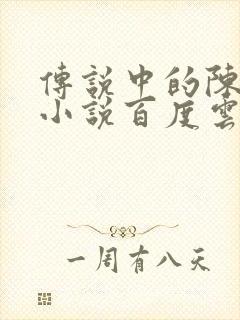 傳說中的陳
小說百度雲
一周有八天